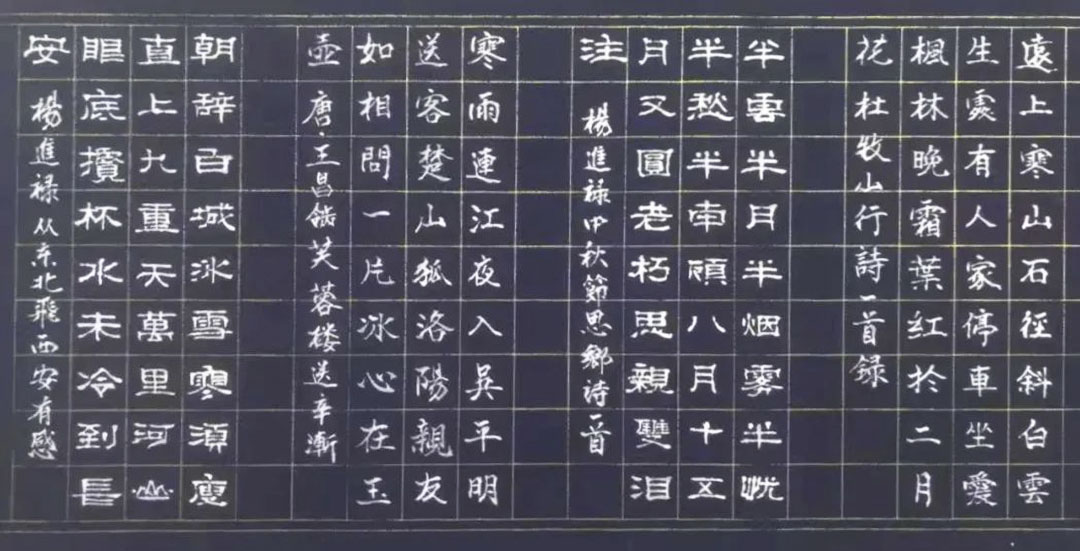 遠上寒山石徑斜白雲
生處有人家停車坐愛
楓林晚霜葉紅於二月
花 杜牧山行詩一首録
半雲半月半烟雾半忧
半愁半南頋八月十五
月又圓老朽思親雙泪
注 楊進禄中秋節思鄉诗一首
寒雨連江夜入吳平明
送客楚山狐洛陽親友
如相問一片冰心在玉
壺 唐·王昌龄芙蓉楼送辛漸
朝辞白城冰雪寒須臾
直上九重天萬里河山
眼底攬杯水未冷到長
安 楊進禄从东北飛西安有感